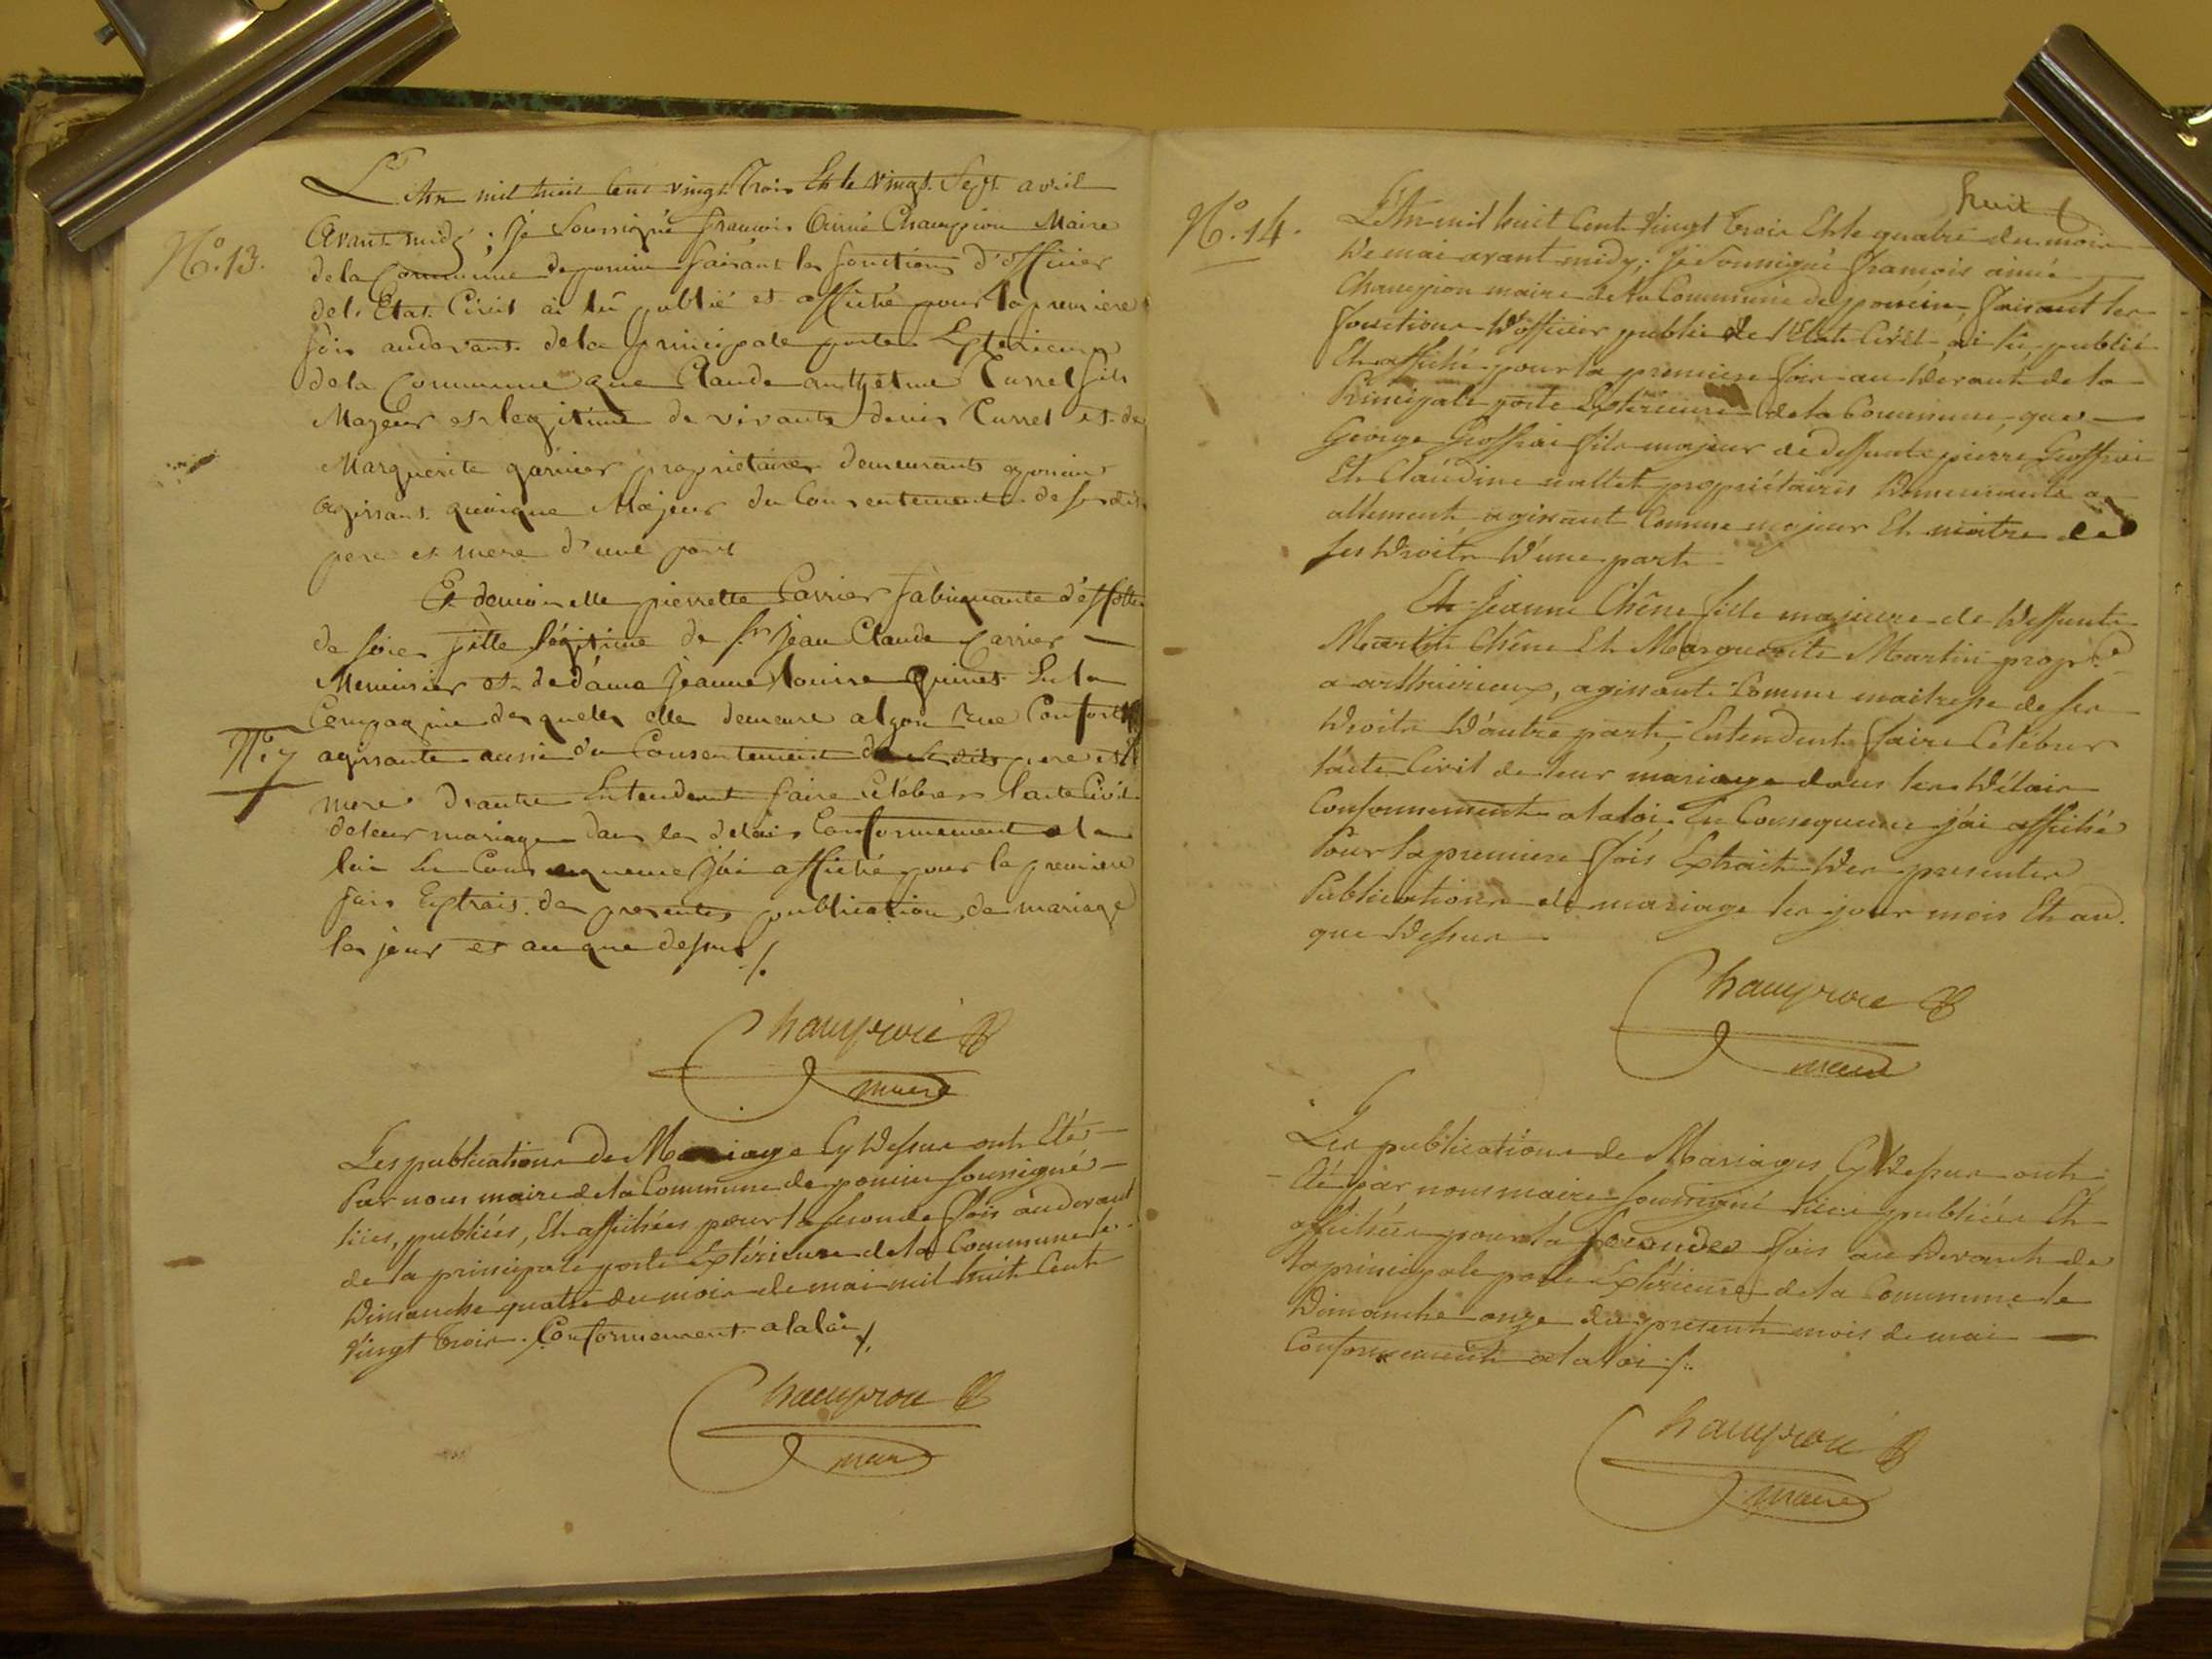 L'An mil huit Cent vingt Trois Et le vingt Sept avril
N.° 13.
avant midy ; Je Soussigné françois Aimé Champion Maire
de la Commune de poncin faisant les fonctions d'officier
del Etat Civil ai lu publié et affiché pour la premiere
fois audavant de la principale porte Exterieure
de la Commune que Claude anthelme Turrel fils
Majeur et legitime de vivants denis Turrel et de
Marguerite garnier proprietaires demeurants a poncin
agissant quoique Majeur du Consentement de ses dits
pere et mere d'une part
Et demoiselle pierrette Carrier fabriquante d'étoffes
de soie fille légitime de sr. Jean Claude Carrier
Menuisier et de dame Jeanne Louise En la
Compagnie des quels elle demeure a lyon rue Confort
N.° 7 agissante aussi du Consentement de ses dits pere et
mere d'autre Entendent faire célébrer l'acte Civil
de leur mariage dans les délais Conformement a la
loi En Consequence j'ai affiché pour la premiere
fois Extrait des presentes publication de mariage
les jour et an que dessus ./.
Champion
maire
Les publications de Mariage Cy dessus ont Eté
Par nous maire de la Commune de poncin soussigné
lües, publiées, Et affichées pour la seconde fois au devant
de la principale porte Extérieure de la Commune le
Dimanche quatre du mois de mai mil huit Cent
Vingt Trois. Conformement a la loi ./.
Champion
maire
huit
N.° 14.
L'An mil huit Cent Vingt Trois Et le quatre du mois
De mai avant midy ; Je Soussigné françois aimé
Champion maire de la Commune de poncin, faisant les
fonctions d'officier public de l'Etat Civil ai lu publié
Et affiché pour la premiere fois au devant de la
Principale porte Extérieure de la Commune, que
George Geoffrai fils majeur de deffunts pierre Geoffrai
Et Claudine mallet propriétaires Demeurants a
allement, agissant Comme majeur Et maitre de
ses Droits D'une part
Et Jeanne Chêne fille majeure de Deffunts
Martin Chêne Et Marguerite Martin propr.e
a arthuirieux, agissante Comme maitresse de ses
Droits D'autre part, Entendent faire Célébrer
l'acte Civil de leur mariage dans les Délais
Conformement a la loi. En Consequence j'ai affiché
Pour la premiere fois Extrait Des presentes
Publications de mariage les jour mois Et an
que Dessus
Champion
maire
Les publications de Mariages Cy Dessus ont
été par nous maire soussigné lües publiées Et
affichées pour la seconde fois au Devant de
la principale porte Extérieure de la Commune le
Dimanche onze du présent mois de mai
Conformement a la loi ./.
Champion
maire